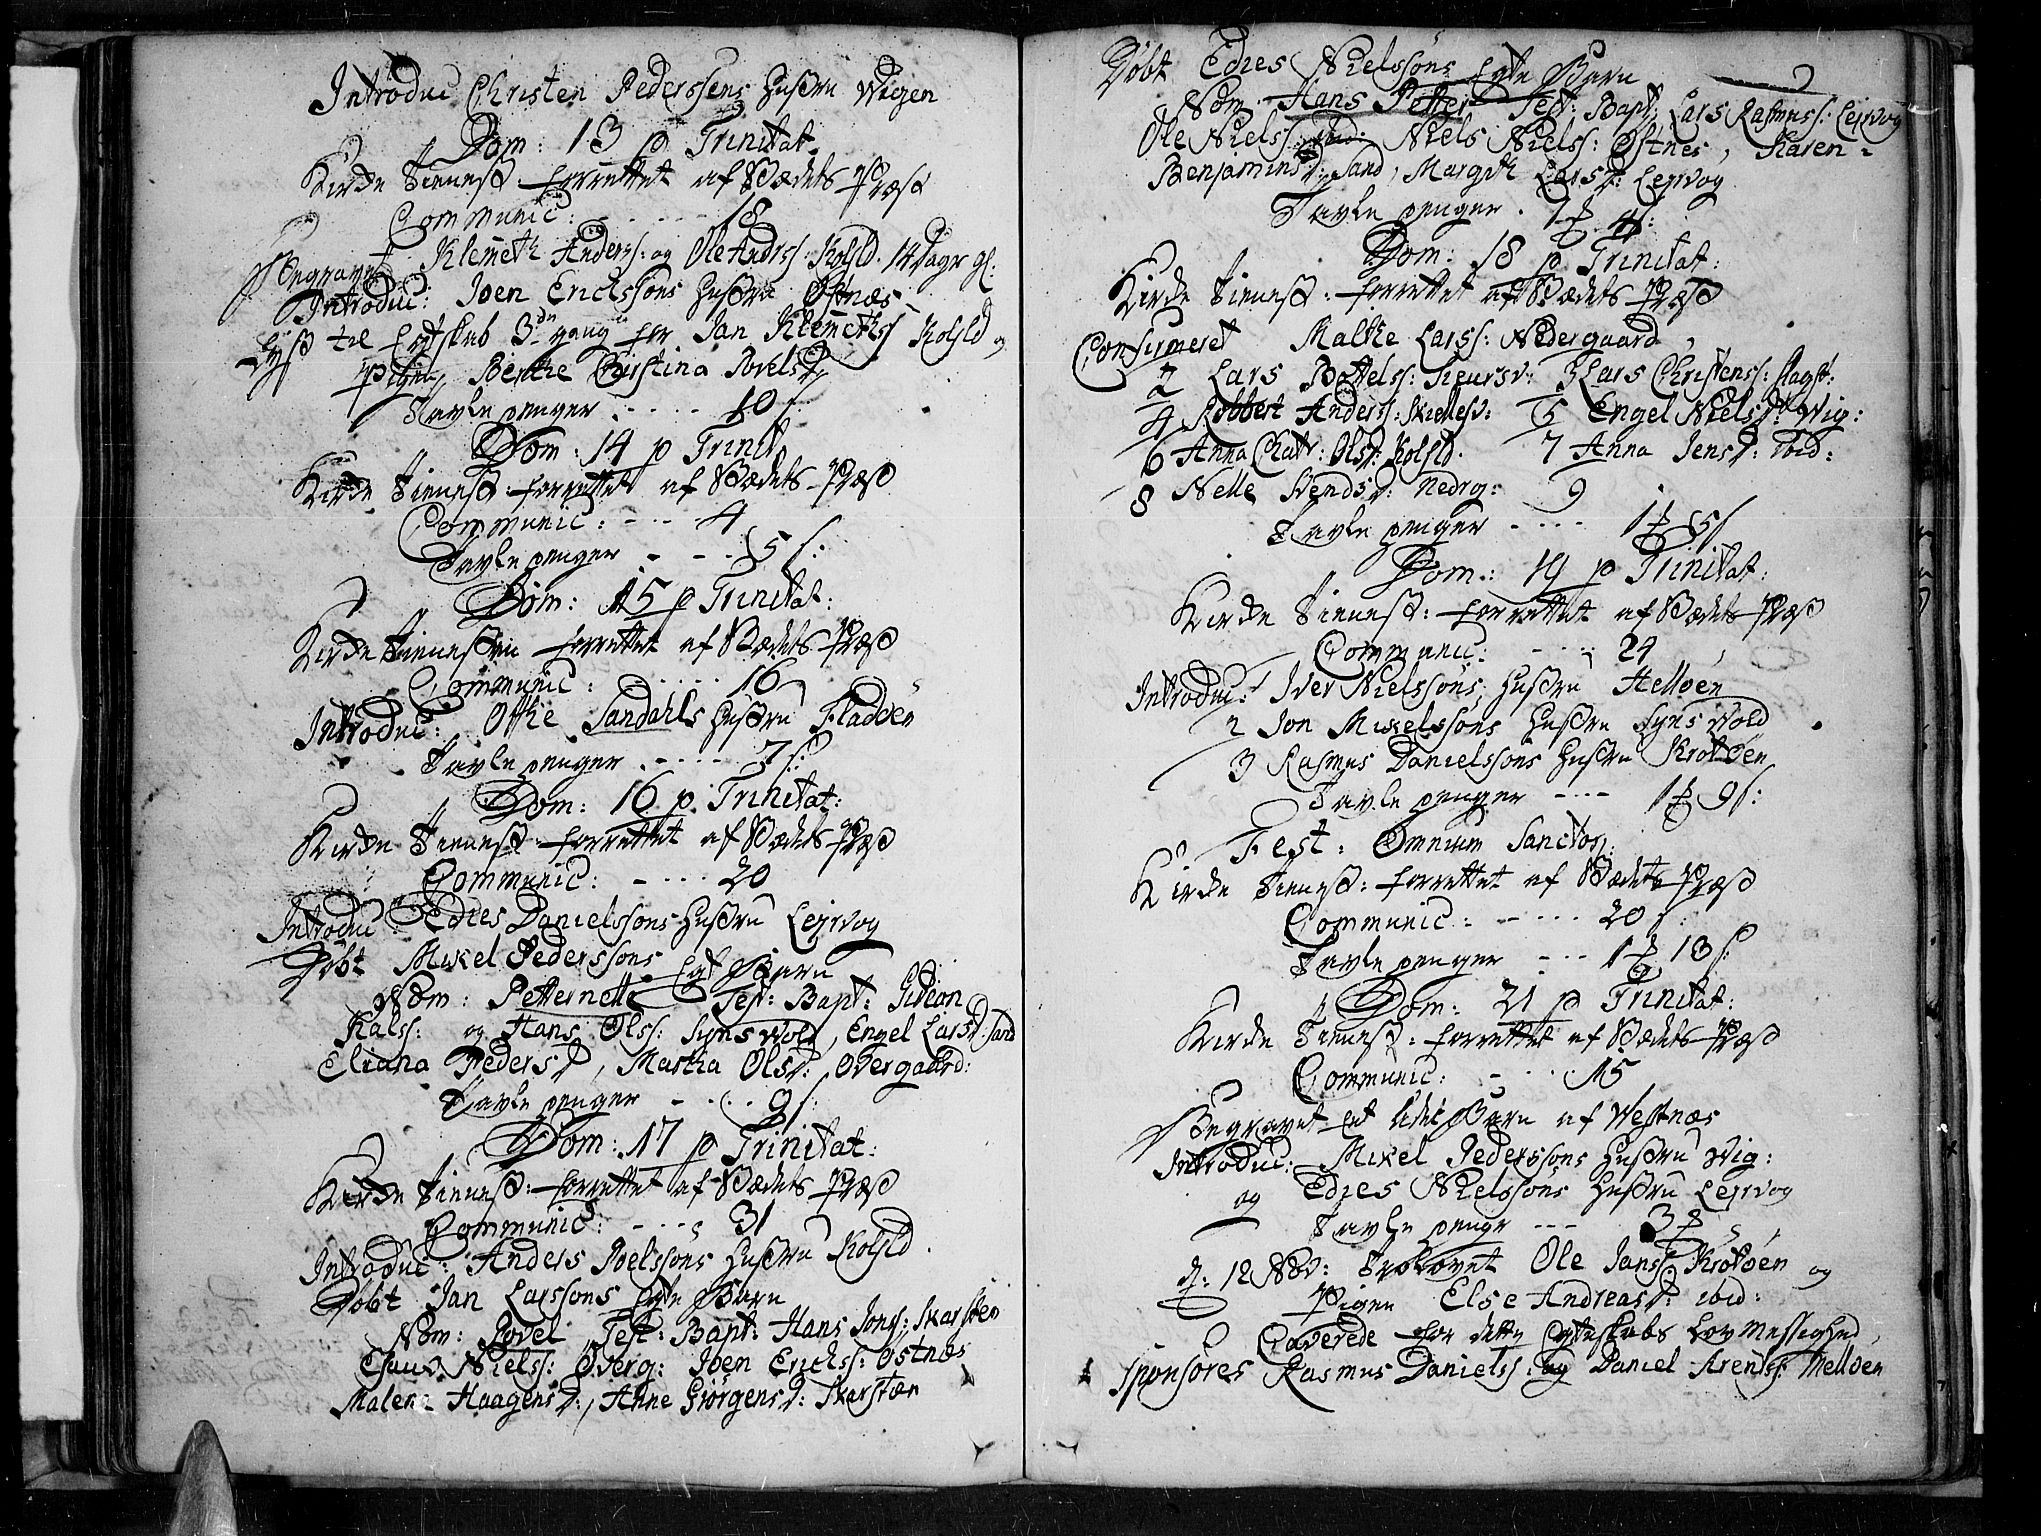 Introduc Christen Pederssens Hustru Wigen
Dom: 13 p Trinitat.
Kircke Tienest forrettet af Stædets Præst
Communic: - - - - - 18
Begravet Klemeth Anderss: og Ole Andrss: Kolsld. 14 dage gl:
Introduc: Joen Erickssöns Hustru Östnæs
Lyst til Egteskab 3de gang for Jan Klemethss Kolsld og
Pigen Berthe Kirstina Povelsd
Tavle penger - - - - 10 s:
Dom: 14 p Trinit
Kircke Tienest forrettet af Stædets Præst
Communic: - - - 4
Tavle penger - - - 5 s:
Dom: 15 p Trinitat:
Kircke Tienesten forrettet af Stædets Præst
Communic: - - - - - 16
Introduc: Otthe Sandahls Hustru Fladöen
Tavle penger - - - - 7 s:
Dom: 16 p. Trinitat:
Kircke Tienest forrettet af Stædets Præst
Communic: - - - - 20
Introduc Edies Danielssöns Hustru Lejrvog
Döbt Mikel Pederssöns Egte Barn
Nom: Petternelle Test: Bapt: Gideon
Kalss: og Hans Olss: Synswold, Engel Larsd: Sand
Eliana Pedersd, Martha Olsd: Overgaard:
Tavle penger - - - - 9 s:
Dom: 17 p Trinitat:
Kircke Tienest: forrettet af Stædets Præst
Communic: - - - - 31
Introduc: Anders Joelssöns Hustru Kolsld.
Döbt Jan Larssöns Egte Barn
Nom: Povel Test: Bapt: Hans Jonss: Skarsten
Niels: Överg: Joen Erickss: Östnæs
Malena Haagensd:, Anne Giörgensd: Skarstæn
Döbt Edies Nielssöns Egte Barn
Nom. Hans Petter Test: Bapt: Lars Rasmuss: Lejrvog
Ole Nielss: ibid: Niels Nielss: Östnes, Karen =
Benjaminsd: Sand, Margith Larsd: Lejrvog
Tavle penger. 1 4 s:
Dom: 18 p Trinitat:
Kircke Tienest: forrettet af Stædets Præst
Confirmeret Malthe Larss: Nedergaard,
2 Lars Bottelss: 3 Lars Christenss: Slagst:
4 Robbert Anderss: 5 Engel Nielsd: Wig:
6 Anna Chatr: Olsd: Kolsld. 7 Anna Jensd: ibid:
8 Nelle Svendsd: Nedrg: 9
Tavle penger - - - - 1 5 s
Dom.: 19 p Trinitat:
Kircke Tienest: forrettet af Stædets Præst
Communic: - - - - 24
Introduc: Iver Nielssöns Hustru Hellöen
2 Jon Mikelssöns Hustru Synsvold
3 Rasmus Danielssöns Hustru Krotöen
Tavle penger - - - - 1 9 s:
Fest: Omnium Sanctor:
Kircke Tienest: forrettet af Stædets Præst
Communic: - - - - 20
Tavle penger - - - 1 13 s
Dom: 21 p Trinitat:
Kircke Tienest: forrettet af Stædets Præst
Communic: - - - 15
Begravet et lidet Barn af Westnæs
Introduc: Mikel Pederssöns Hustru Wig:
og Edies Nielssöns Hustru Lejrvog
Tavle penge - - - 3
d: 12 Nov: Trolovet Ole Jans: Krotöen og
Pigen Else Andreasd: ibid:
Caverede for dette Egteskabs Lovmessighed,
Sponsores Rasmus Danielss: og Daniel Arentss: Mellöen